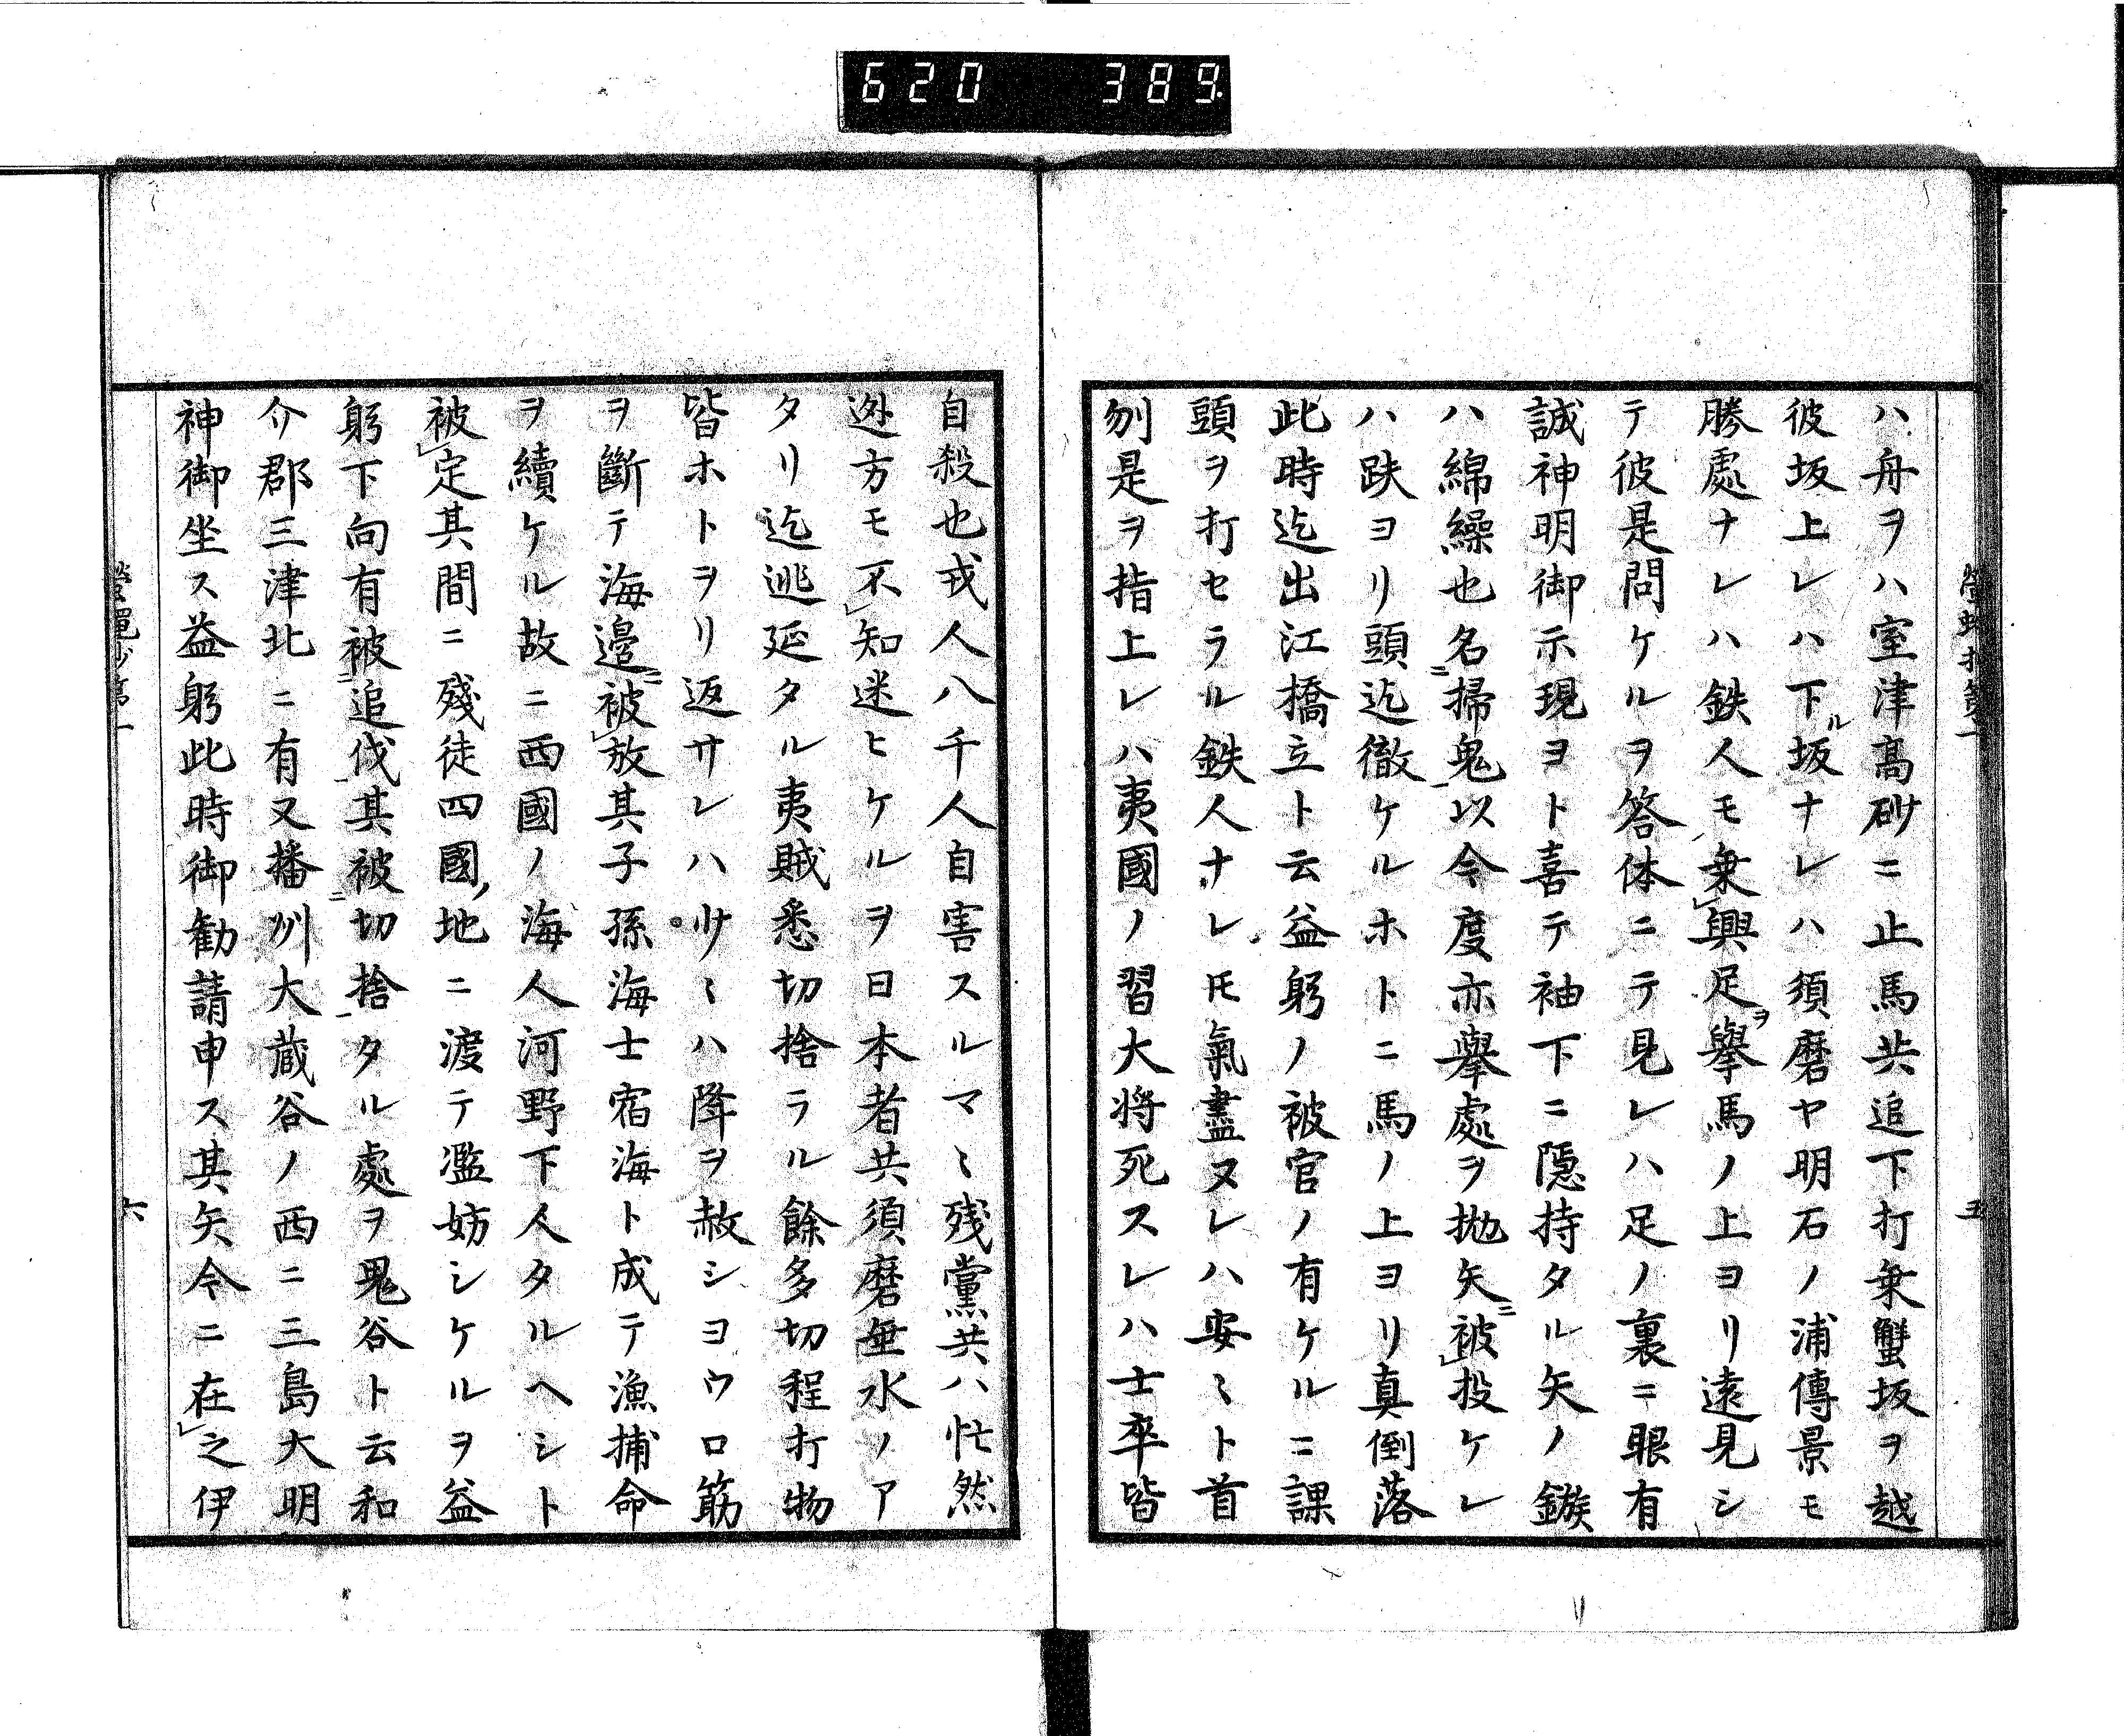 620 389
ハ舟ヲハ室津髙砂ニ止馬共追下打乗蟹坂ヲ越
彼坂上レハ下ル坂ナレハ須磨ヤ明石ノ浦傳景モ
勝處ナレハ鉄人モ乗興足ヲ擧馬ノ上ヨリ遠見シ
テ彼是問ケルヲ答体ニテ見レハ足ノ裏ニ眼有
誠神明御示現ヨト喜テ袖下ニ隱持タル矢ノ鏃
ハ綿繰也名ニ掃鬼以今度亦擧處ヲ拋矢ニ被投ケレ
ハ趺ヨリ頭迄徹ケルホトニ馬ノ上ヨリ真倒落
此時迄出江橋立ト云益躬ノ被官ノ有ケルニ課
頭ヲ打セラル鉄人ナレ𪜈氣盡ヌレハ安〻ト首
刎是ヲ指上レハ夷國ノ習大将死スレハ士卒皆
五
自殺也戎人八千人自害スルマ〻残黨共ハ忙然
迯方モ不知迷ヒケルヲ日本者共須磨垂水ノア
タリ迄逃延タル夷賊悉切捨ラル餘多切程打物
皆ホトヲリ返サレハ少〻ハ降ヲ赦シヨウロ筋
ヲ斷テ海邉ニ被放其子孫海士宿海ト成テ漁捕命
ヲ續ケル故ニ西國ノ海人河野下人タルヘシト
被定其間ニ殘徒四國地ニ渡テ濫妨シケルヲ益
躬下向有被ニ追伐其被ニ切捨タル處ヲ鬼谷ト云和
介郡三津北ニ有又播州大蔵谷ノ西ニ三島大明
神御坐ス益躬此時御勧請申ス其矢今ニ在之伊
六